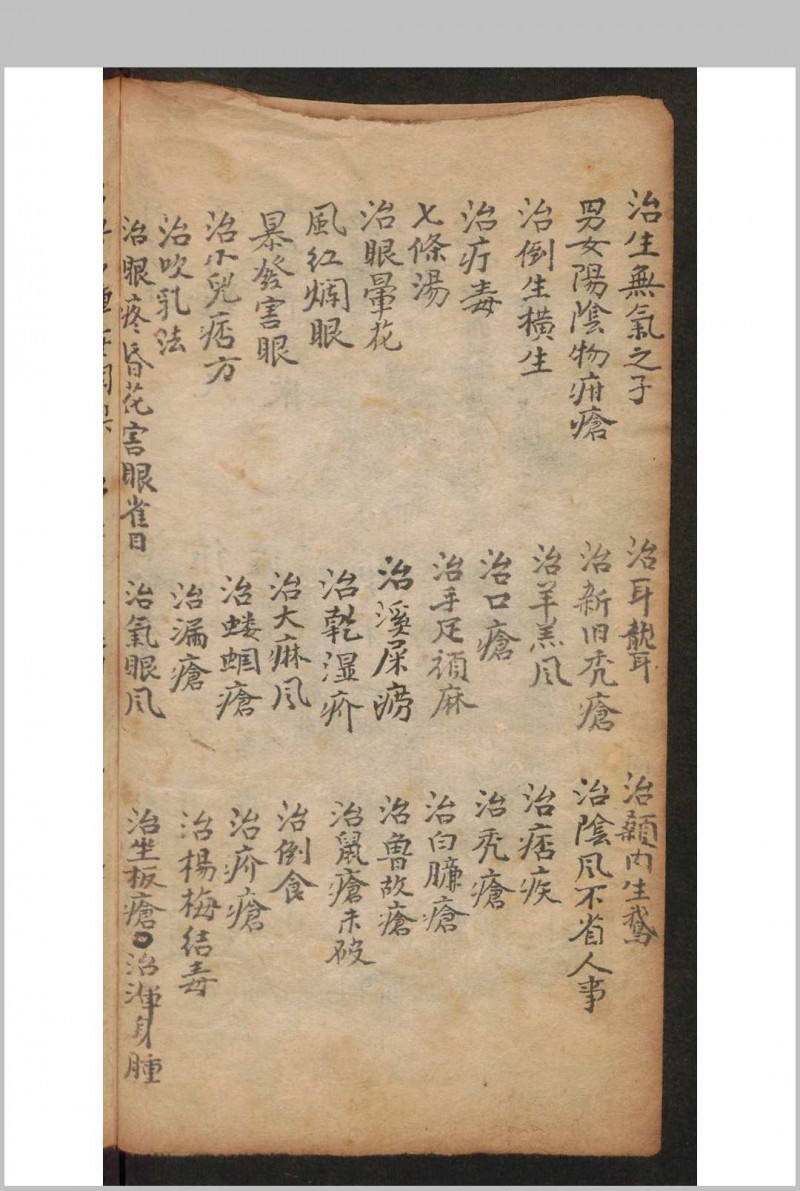 治生無氣之子
男女陽陰物疳瘡
治倒生橫生
治疔毒
七條湯
治眼暈花
風紅爛眼
暴發害眼
治小兒痞方
治吹乳法
治眼疼昏花害眼雀目
治耳聾耳
治新旧禿瘡
治羊羔风
治口瘡
治手足頑麻
治溪屎癆
治乾湿疥
治大麻风
治蝼蝈瘡
治漏瘡
治氣眼风
治顙内生鵞
治陰风不省人事
治痞疾
治禿瘡
治白臁瘡
治魯故瘡
治鼠瘡未破
治倒食
治疥瘡
治楊梅结毒
治坐板瘡〇治渾身腫